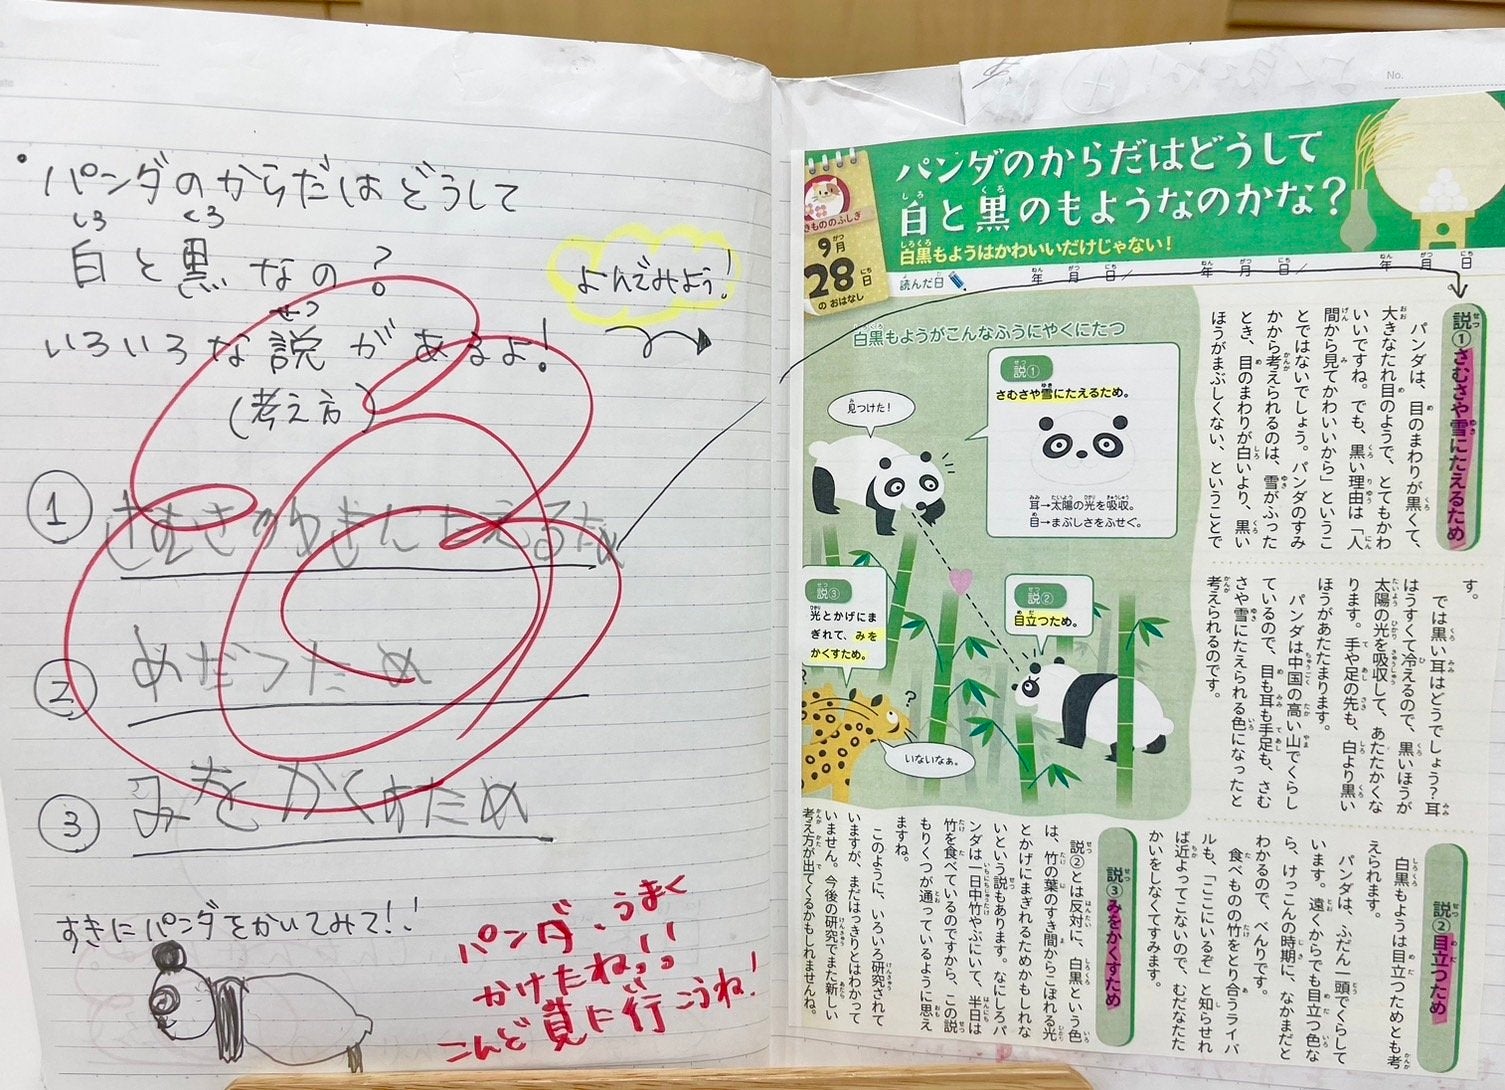 ・パンダのからだはどうして
白と黒なの?
いろいろな説があるよ!
(考え方)
よんでみよう!
① さむさやゆきにたえるため
② めだつため
③ みをかくすため
すきにパンダをかいてみて!!
パンダ、うまく
かけたね!!
こんど見に行こうね!
No.
パンダのからだはどうして
白と黒のもようなのかな?
白黒もようはかわいいだけじゃない!
きもののふしぎ
9月
28日
のおはなし
読んだ日
年 月 日/ 年 月 日/ 年 月 日
白黒もようがこんなふうにやくにたつ
説①
さむさや雪にたえるため。
耳→太陽の光を吸収。
目→まぶしさをふせぐ。
見つけた!
説②
目立つため。
説③
光とかげにま
ぎれて、みを
かくすため。
いないなぁ。
説①さむさや雪にたえるため
パンダは、目のまわりが黒くて、
大きなたれ目のようで、とてもかわ
いいですね。でも、黒い理由は「人
間から見てかわいいから」というこ
とではないでしょう。パンダのすみ
かから考えられるのは、雪がふった
とき、目のまわりが白いより、黒い
ほうがまぶしくない、ということで
す。
では黒い耳はどうでしょう?耳
はうすくて冷えるので、黒いほうが
太陽の光を吸収して、あたたかくな
ります。手や足の先も、白より黒い
ほうがあたたまります。
パンダは中国の高い山でくらし
ているので、目も耳も手足も、さむ
さや雪にたえられる色になったと
考えられるのです。
説②目立つため
白黒もようは目立つためとも考
えられます。
パンダは、ふだん一頭でくらして
います。遠くからでも目立つ色な
ら、けっこんの時期に、なかまだと
わかるので、べんりです。
食べものの竹をとり合うライバ
ルも、「ここにいるぞ」と知らせれ
ば近よってこないので、むだなたた
かいをしなくてすみます。
説③みをかくすため
説②とは反対に、白黒という色
は、竹の葉のすき間からこぼれる光
とかげにまぎれるためかもしれな
いという説もあります。なにしろパ
ンダは一日中竹やぶにいて、半日は
竹を食べているのですから、この説
もりくつが通っているように思え
ますね。
このように、いろいろ研究されて
いますが、まだはっきりとはわかって
いません。今後の研究でまた新しい
考え方が出てくるかもしれませんね。